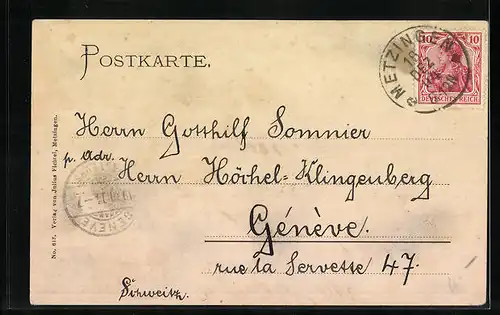 POSTKARTE.
METZINGEN
10 10
DEUTSCHES REICH
Herrn Gotthilf Sommier
p. adr.
Herrn Höchel-Klingenberg
Génève.
rue la Servette 47.
Schweitz.
GENÈVE
No. 617. Verlag von Julius Fleisel, Metzingen.